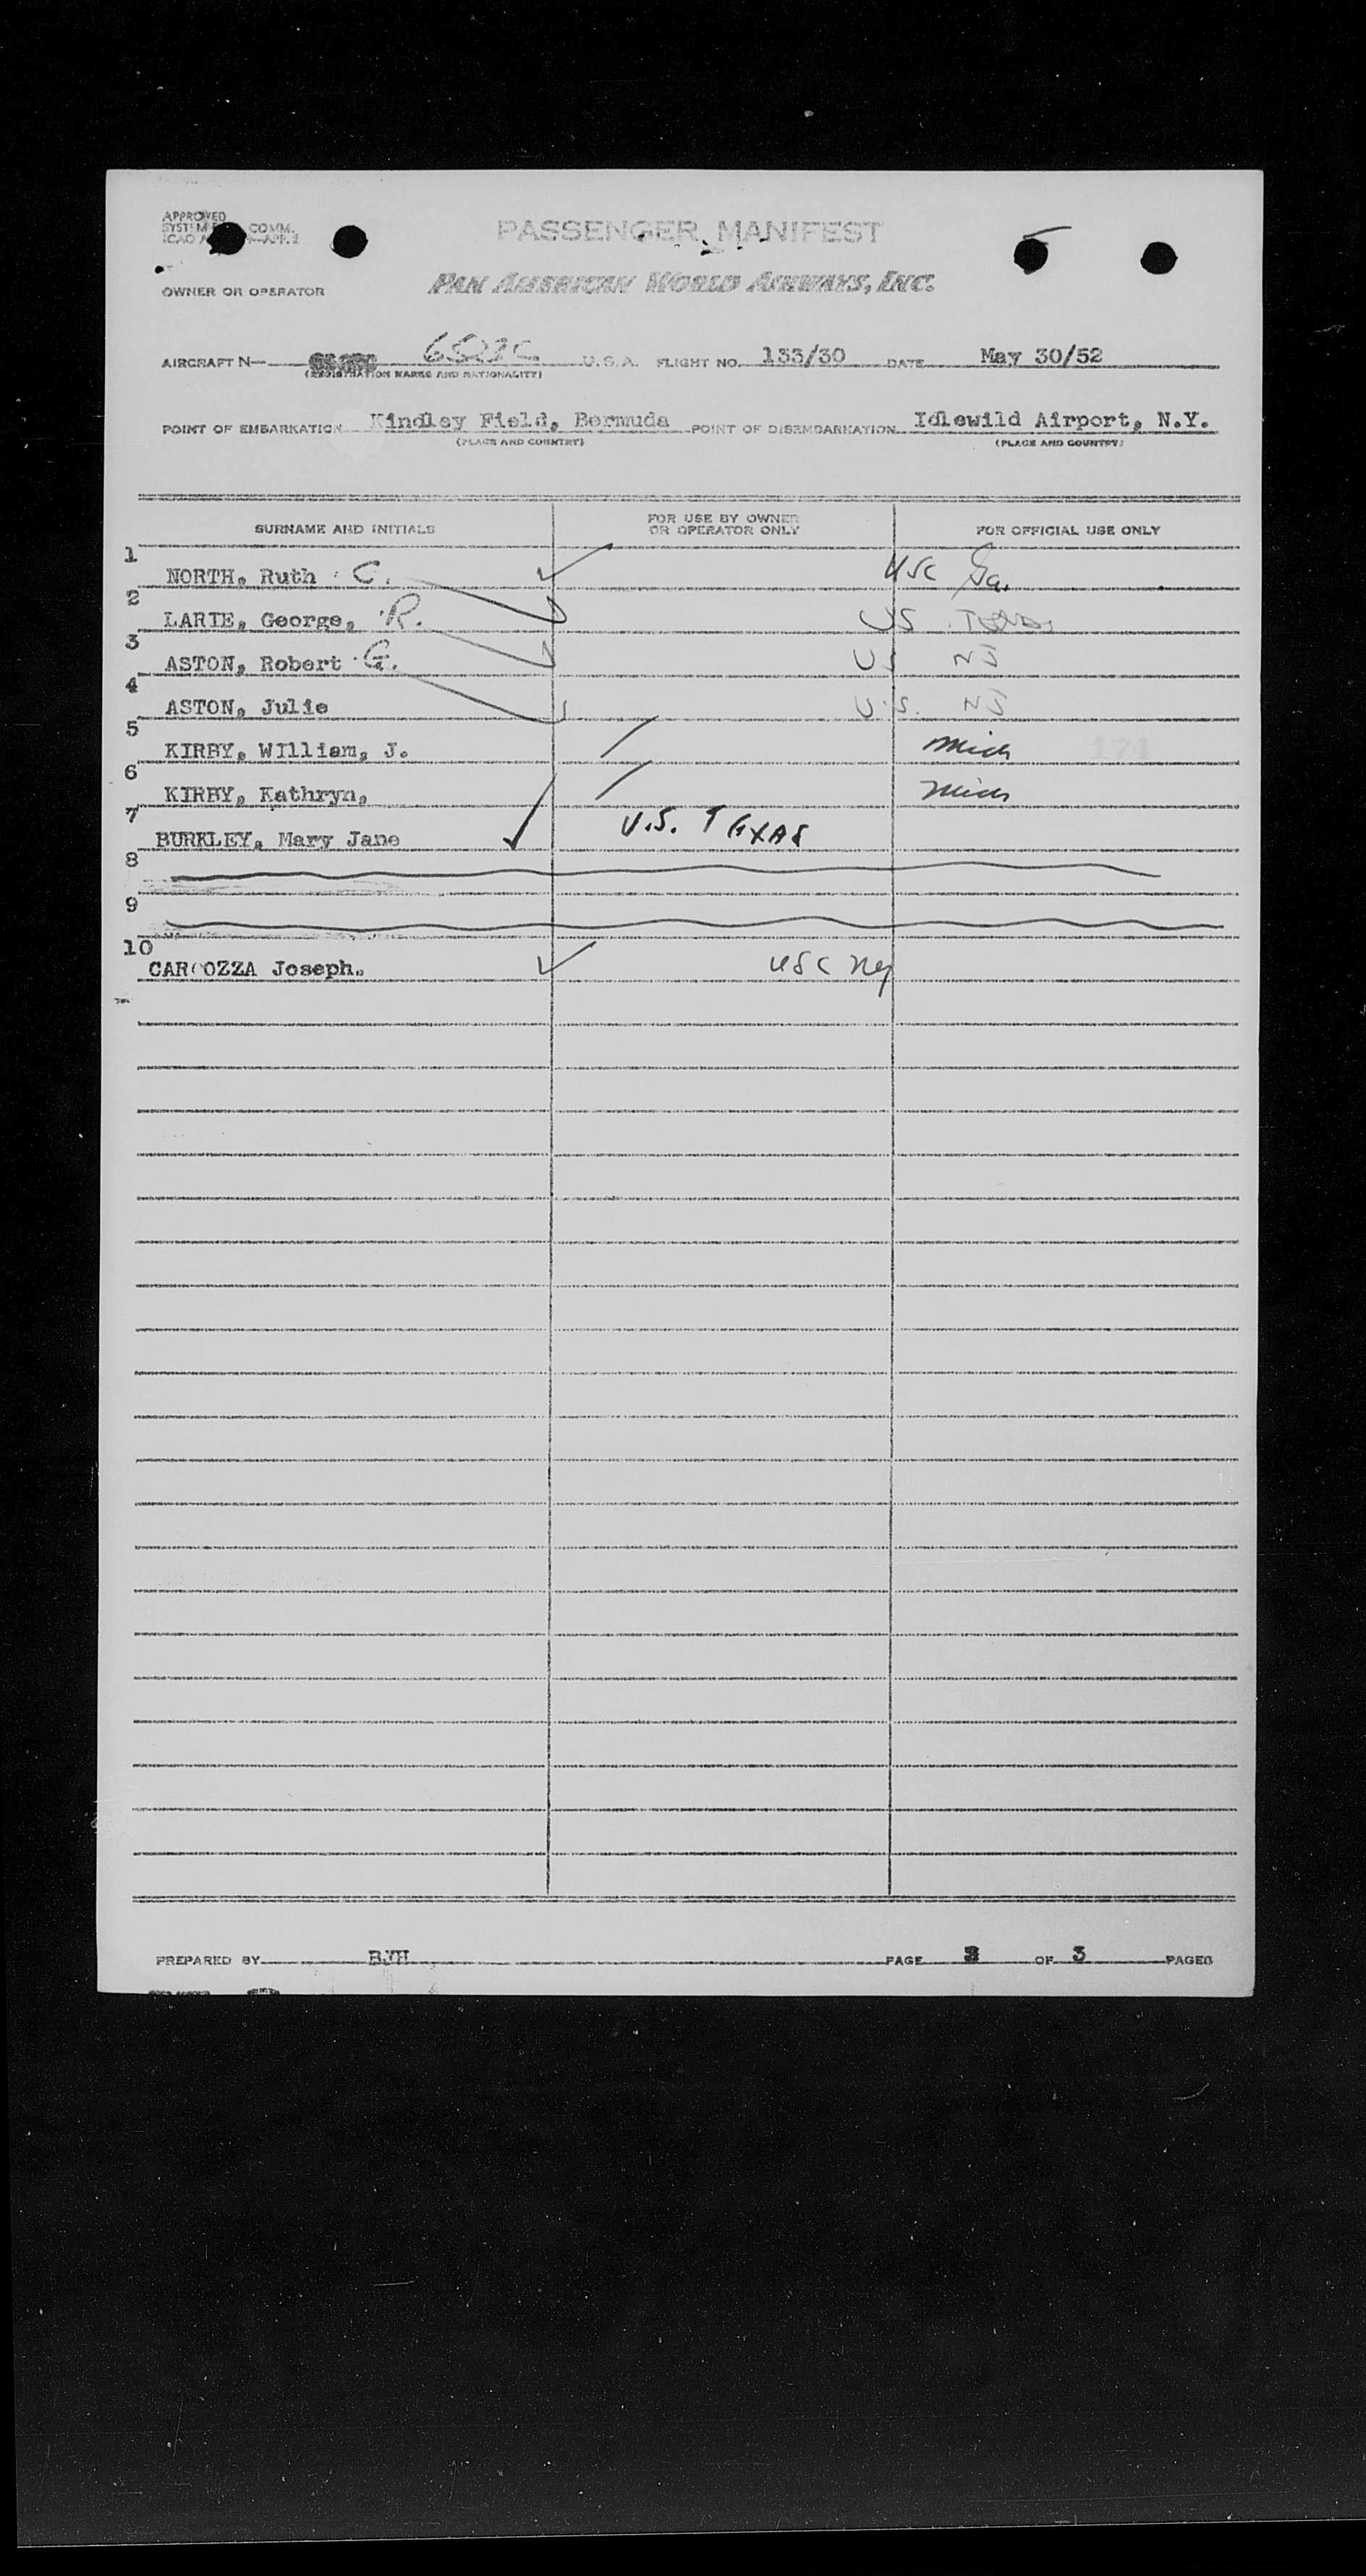 APPROVED
SYSTEM COMM.
ICAO APP. 2
PASSENGER MANIFEST
OWNER OR OPERATOR PAN AMERICAN WORLD AIRWAYS, INC.
AIRCRAFT N— U.S.A. FLIGHT NO. 133/30 DATE May 30/52
(REGISTRATION MARKS AND NATIONALITY)
POINT OF EMBARKATION Kindley Field, Bermuda POINT OF DISEMBARKATION Idlewild Airport, N.Y.
(PLACE AND COUNTRY) (PLACE AND COUNTRY)
SURNAME AND INITIALS FOR USE BY OWNER OR OPERATOR ONLY FOR OFFICIAL USE ONLY
1 NORTH, Ruth C. USC Ga.
2 LARIE, George, R. US Texas
3 ASTON, Robert G. US NJ
4 ASTON, Julie U.S. NJ
5 KIRBY, WIlliam, J. Mich 174
6 KIRBY, Kathryn, Mich
7 BURKLEY, Mary Jane U.S. TEXAS
8
9
10 CARCOZZA Joseph. USC NY
PREPARED BY BJH PAGE 3 OF 3 PAGES